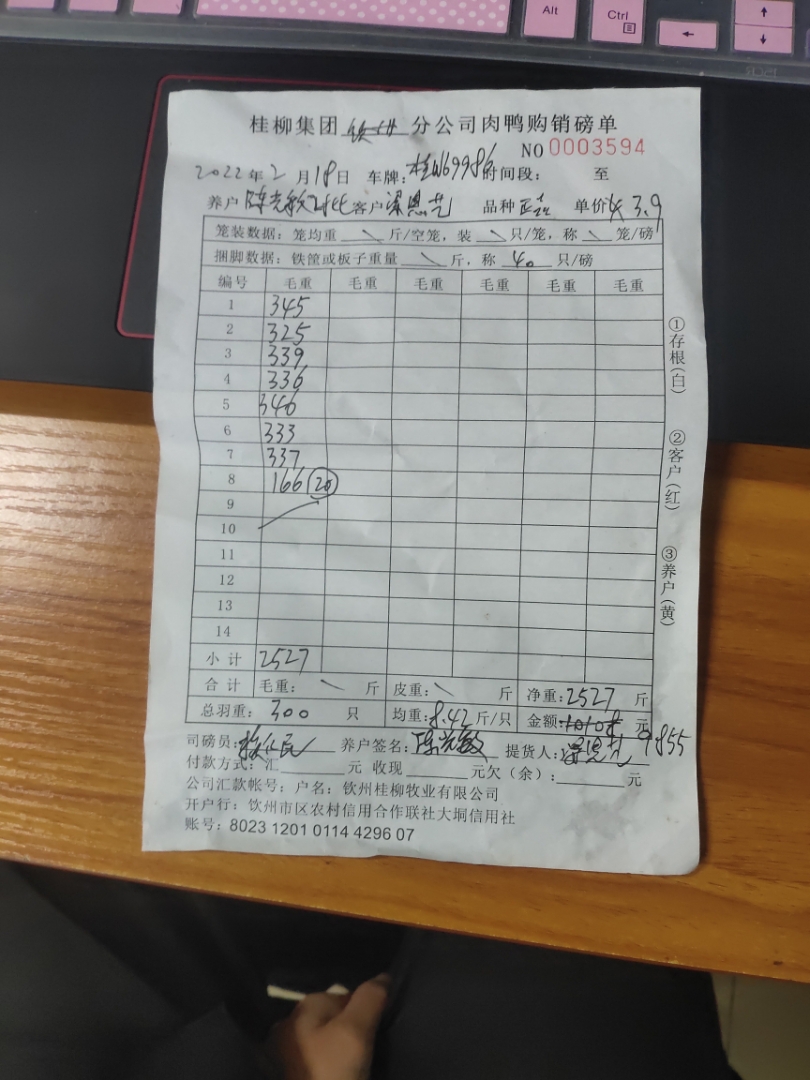 Alt
Ctrl
桂柳集团 分公司肉鸭购销磅单
NO 0003594
2022年2月18日 车牌:桂W69986时间段: 至
养户 陈光毅 客户 梁恩艺 品种 单价 3.9
笼装数据: 笼均重 \ 斤/空笼, 装 \ 只/笼, 称 \ 笼/磅
捆脚数据: 铁筐或板子重量 \ 斤, 称 40 只/磅
编号 毛重 毛重 毛重 毛重 毛重 毛重
1 345
2 325
3 339
4 336
5 346
6 333
7 337
8 166 (20)
9
10
11
12
13
14
小计 2527
合计 毛重: \ 斤 皮重: \ 斤 净重:2527 斤
总羽重: 300 只 均重:8.42斤/只 金额: 元
9855
司磅员: 养户签名: 提货人:
付款方式: 汇 元 收现 元欠(余): 元
公司汇款帐号: 户名: 钦州桂柳牧业有限公司
开户行: 钦州市区农村信用合作联社大垌信用社
账号: 8023 1201 0114 4296 07
①存根(白)
②客户(红)
③养户(黄)